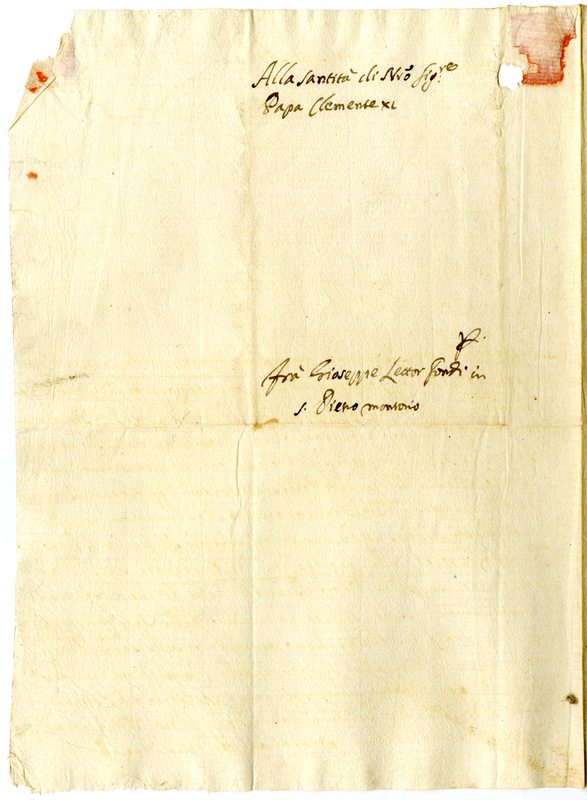 Alla Santità di Nrõ Sig.re
Papa Clemente XI
frà Gioseppe Lettor in
S. Pietro montorio